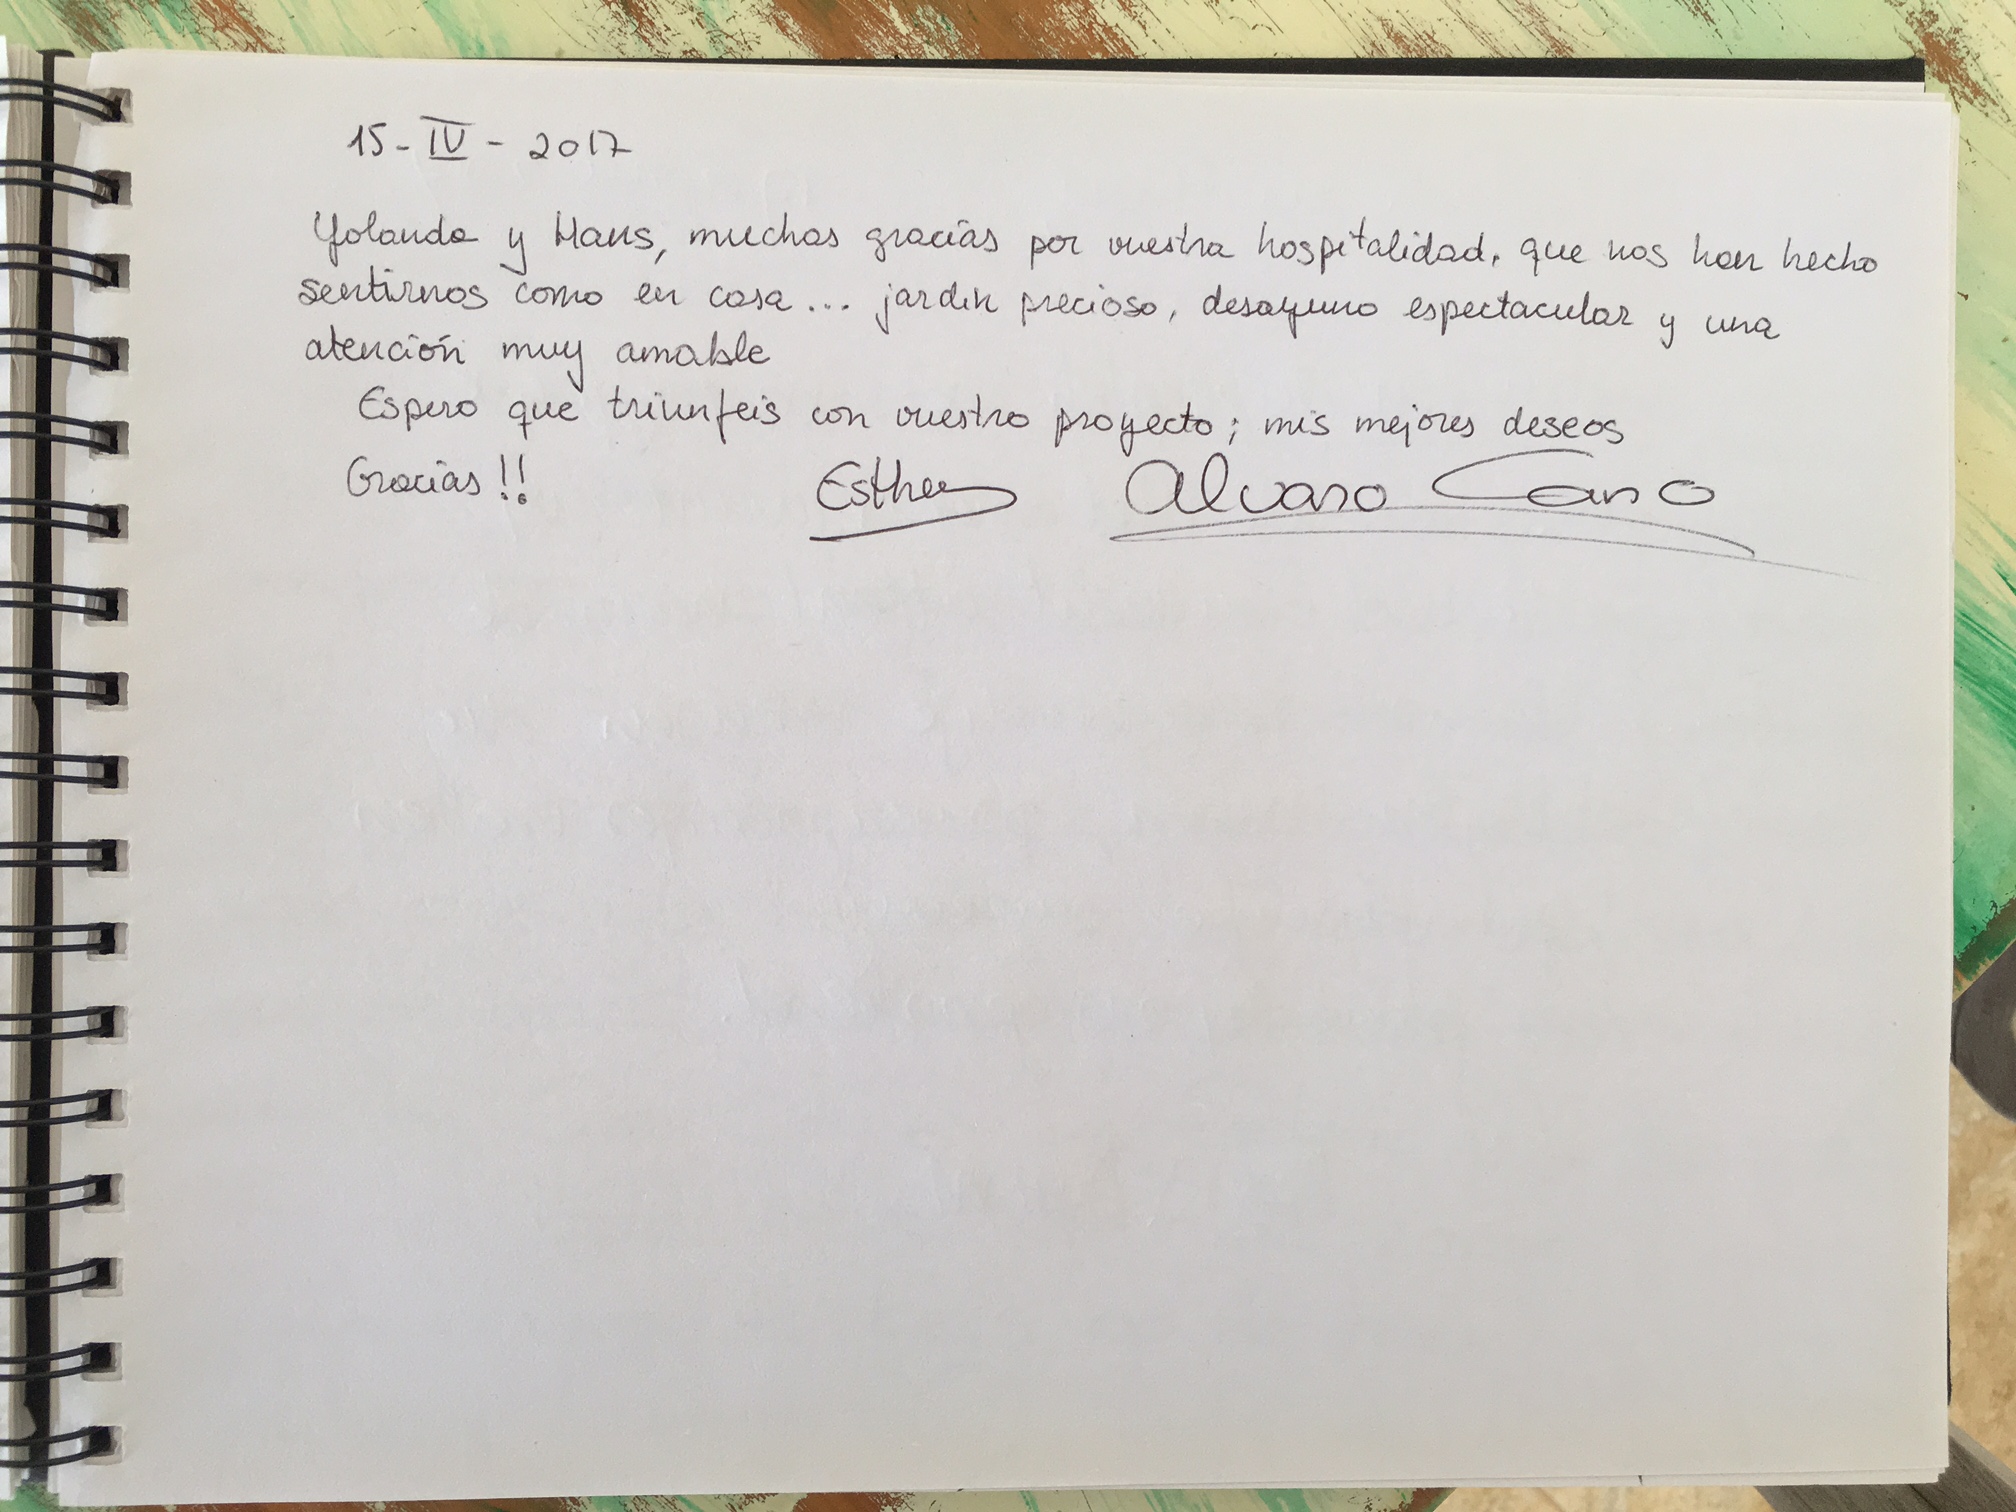 15-IV-2017
Yolanda y Hans, muchas gracias por vuestra hospitalidad, que nos han hecho
sentirnos como en casa... jardin precioso, desayuno espectacular y una
atención muy amable
Espero que triunfeis con vuestro proyecto; mis mejores deseos
Gracias!! Esther Alvaro Cano